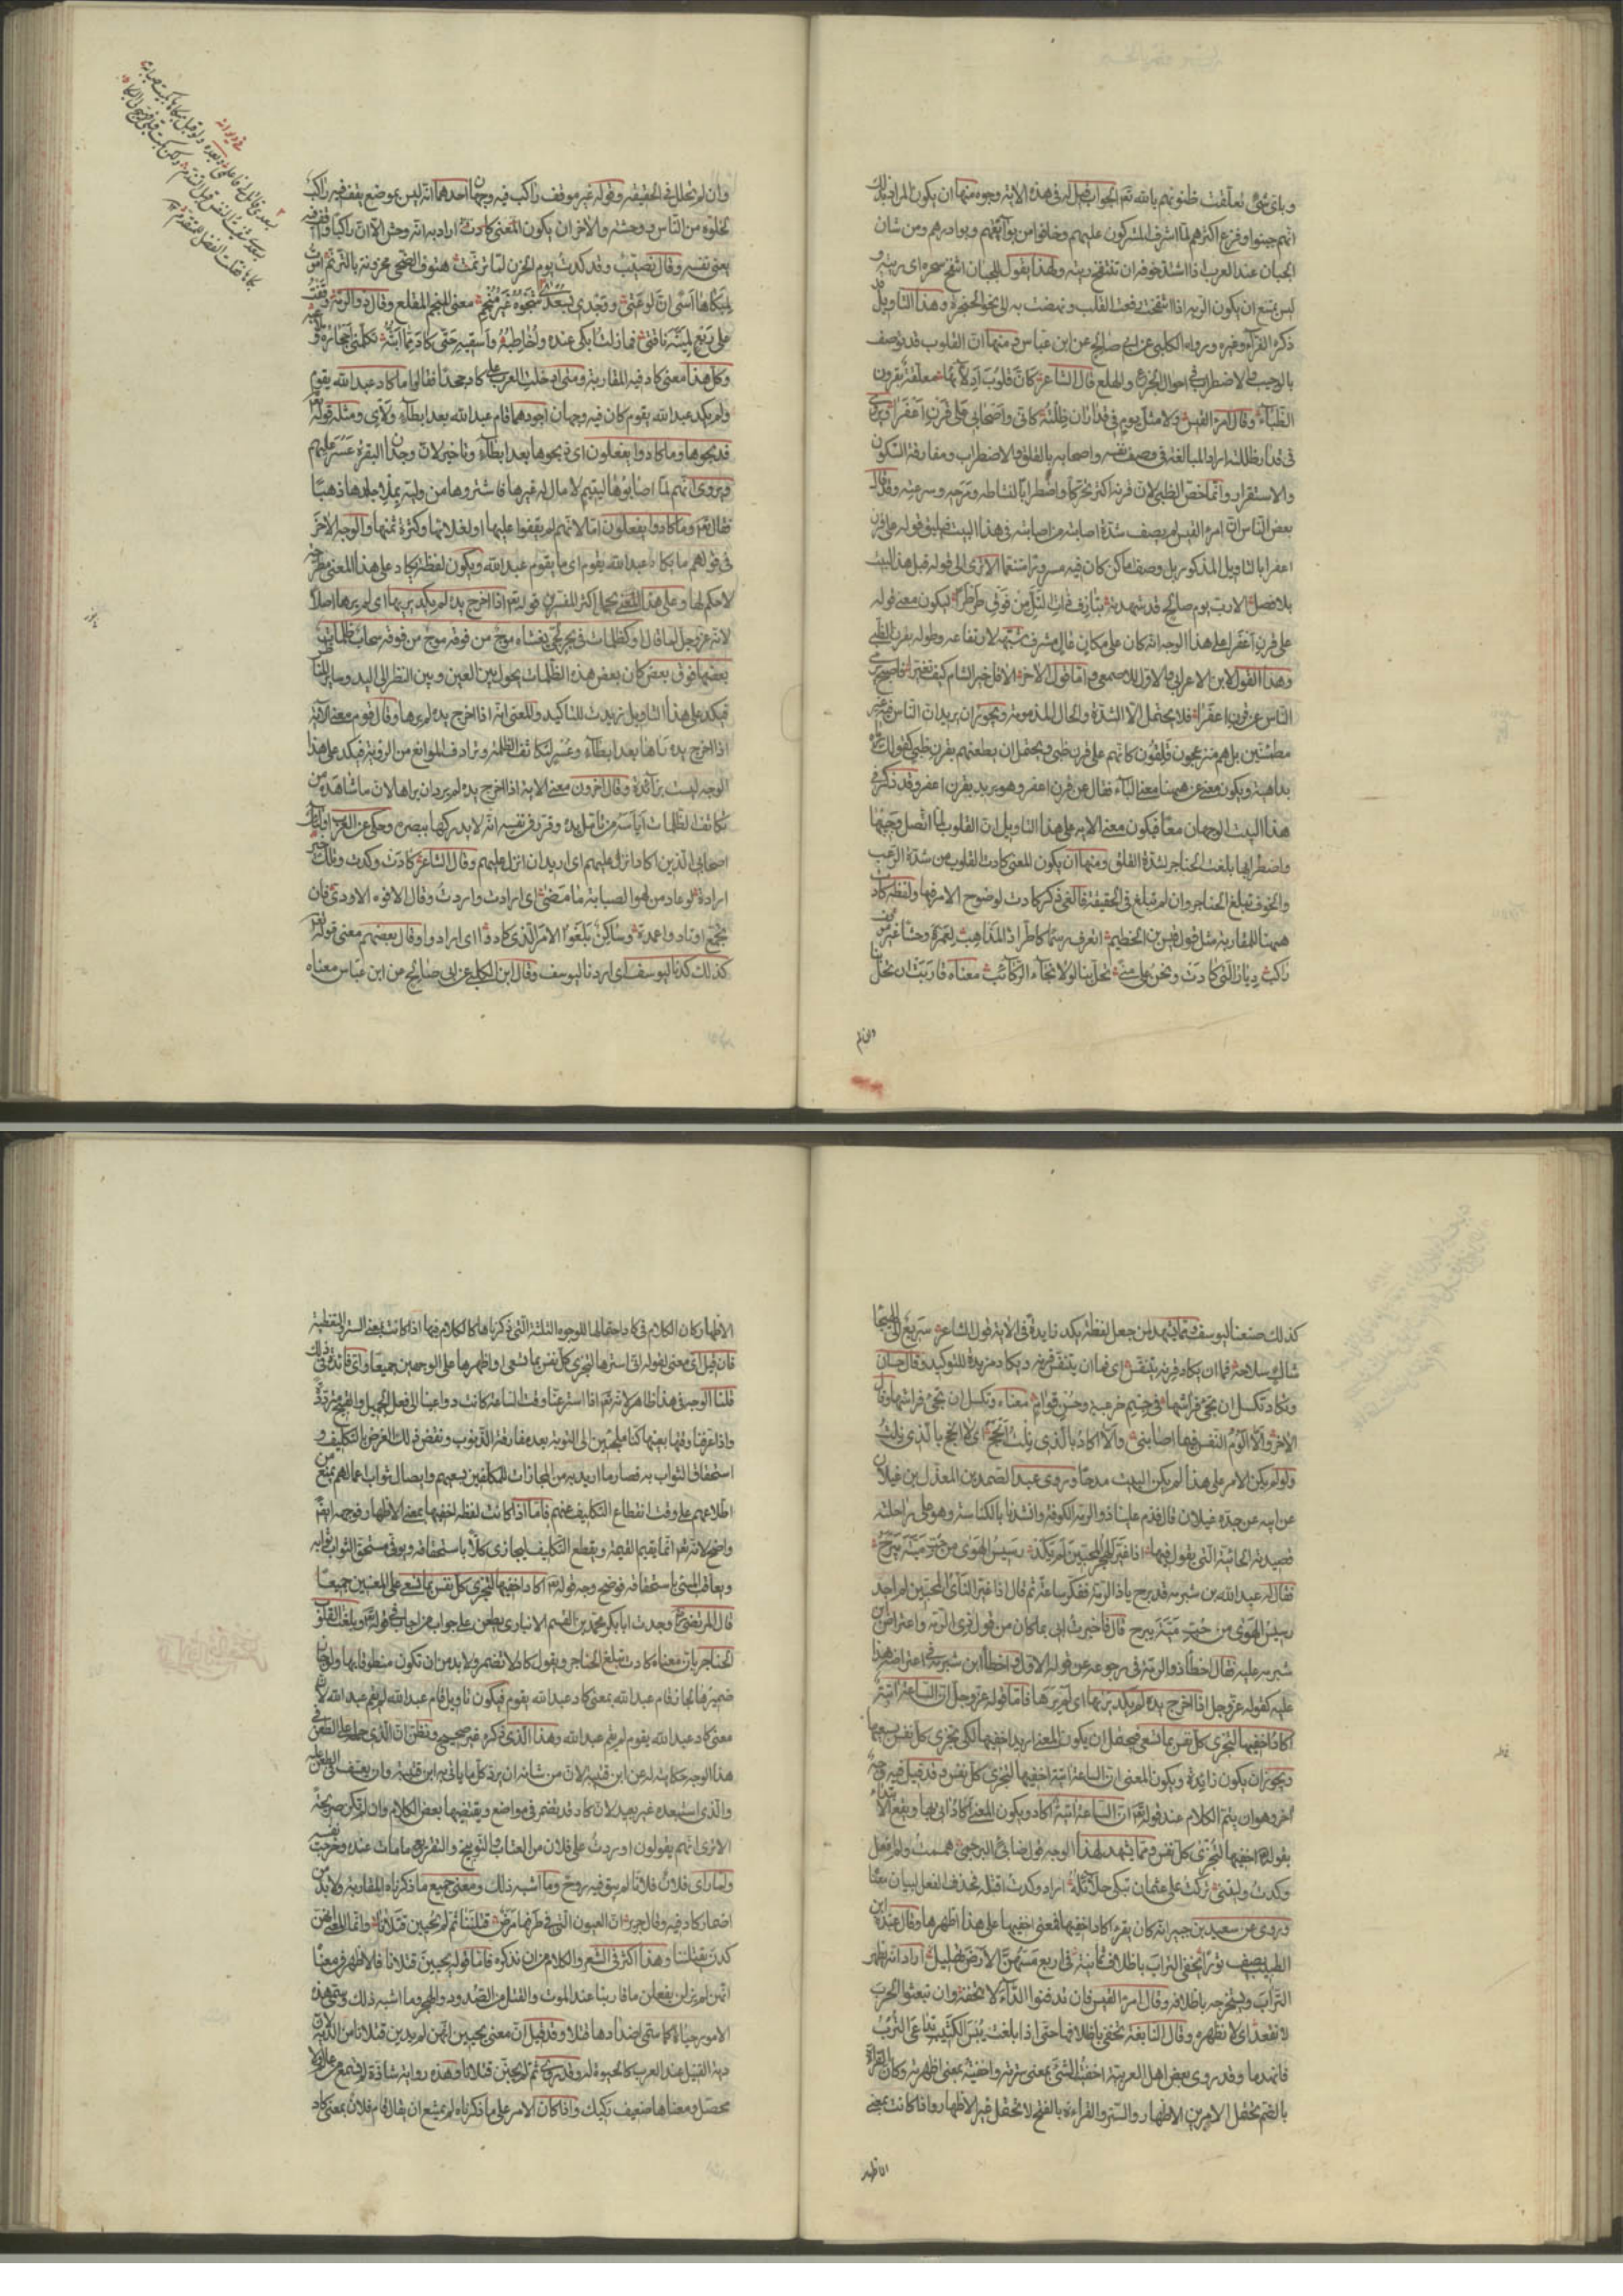 وباى شئ تعلقت ظنونهم بالله تع الجواب قيل له فى هذه الاية وجوه منها ان يكون المراد بذلك
انهم جبنوا وفزع اكثرهم لما اشرف المشركون عليهم وخافوا من بوائقهم وبوادرهم ومن شان
الجبان عند العرب اذا اشتد خوفه ان تنتفخ ريته ولهذا يقول للجبان انتفخ سحره اى ريته و
ليس يمتنع ان يكون الرية اذا انتفخت رفعت القلب ونهضت به الى نحو الحنجرة وهذا التاويل قد
ذكره الفرآء وغيره ورواه الكلبى عن ابى صالح عن ابن عباس ومنها ان القلوب قد توصف
بالوجيب والاضطراب فى احوال الجزع والهلع قال الشاعر كان قلوب ادلائها معلقة بقرون
الظباء وقال امرؤ القيس ولا مثل يوم فى قذاران ظلته كانى واصحابى على قرن اعفرا ويروى
فى قدار ظللته اراد المبالغة فى وصف نفسه واصحابه بالقلق والاضطراب ومفارقة السكون
والاستقرار وانما خص الظبى لان قرنه اكثر تحركا واضطرابا لنشاطه ومرحه وسرعته وقد قال
بعض الناس ان امرء القيس لم يصف شدة اصابته من اصابته فى هذا البيت فيليق قوله على قرن
اعفرا بالتاويل المذكور بل وصف اماكن كان فيه مسرورا متنعما الا ترى الى قوله قبل هذا البيت
بلا فصل الا رب يوم صالح قد شهدته بتاذف ذات التل من فوق طرطرا فيكون معنى قوله
على قرن اعفرا على هذا الوجه انه كان على مكان عال مشرف شبهه لارتفاعه وطوله بقرن الظبى
وهذا القول لابن الاعرابى والاول للاصمعى واما قول الاخر الا قل لخير الشام كيف تغيرا فاصبح يرمى
الناس عن قرن اعفرا فلا يحتمل الا الشدة والحال المذمومة ويجوز ان يريد ان الناس فيه غير
مطمئنين بل هم منزعجون قلقون كانهم على قرن ظبى ويحتمل ان يطعنهم بقرن ظبى كقولك رماه
بداهية ويكون معنى عن ههنا معنى الباء فقال عن قرن اعفر وهو يريد بقرن اعفر وقد ذكر فى
هذا البيت الوجهان معا فيكون معنى الاية على هذا التاويل ان القلوب لما اتصل وجيبها
واضطرابها بلغت الحناجر لشدة القلق ومنها ان يكون المعنى كادت القلوب من شدة الرعب
والخوف تبلغ الحناجر وان لم تبلغ فى الحقيقة فالغى ذكر كادت لوضوح الامر فيها ولفظة كاد
ههنا للمقاربة مثل قول قيس بن الخطيم اتعرف رسما كاطراد المذاهب لعمرة وحشا غير موقف
راكب ديار التى كادت ونحن على منى تحل بنا لولا نجاء الركائب معناه قاربت ان تحل بنا
وان لم
وان لم تحلل فى الحقيقة وقوله غير موقف راكب فيه وجهان احدهما انه ليس بموضع يقف فيه راكب
لخلوه من الناس ووحشته والاخر ان يكون المعنى كادت اراد به انه وحش الا ان راكبا وقف فيه
يعنى نفسه وقال نصيب وقد كدت يوم الحزن لما ترنمت هتوف الضحى محزونة بالترنم اموت
لمبكاها اسى ان لوعتى ووجدى بسعدى شجوه غير منجم معنى المنجم المقلع وقال ذو الرمة وقفت
على ربع لمية ناقتى فما زلت ابكى عنده واخاطبه واسقيه حتى كاد مما ابثه تكلمنى احجاره وملاعبه
وكل هذا معنى كاد فيه المقاربة ومتى ادخلت العرب على كاد جحدا فقالوا ما كاد عبد الله يقوم
ولم يكد عبد الله يقوم كان فيه وجهان اجودهما قام عبد الله بعد ابطاء ولاى ومثله قوله تع
فذبحوها وما كادوا يفعلون اى ذبحوها بعد ابطاء وتاخير لان وجدان البقرة عسر عليهم
ويروى انهم لما اصابوها ليتيم لا مال له غيرها فاشتروها من وليه بملأ جلدها ذهبا
فقال تع وما كادوا يفعلون اما لانهم لم يقفوا عليها او لغلائها وكثرة ثمنها والوجه الاخر
فى قولهم ما يكاد عبد الله يقوم اى ما يقوم عبد الله ويكون لفظة يكاد على هذا المعنى مطرحة
لا حكم لها وعلى هذا المعنى يحمل اكثر المفسرين قوله تع اذا اخرج يده لم يكد يريها اى لم يرها اصلا
لانه عز وجل لما قال او كظلمات فى بحر لجى يغشاه موج من فوقه موج من فوقه سحاب ظلمات
بعضها فوق بعض كان بعض هذه الظلمات يحول بين العين وبين النظر الى اليد وساير المناظر
فيكد على هذا التاويل زيدت للتاكيد والمعنى انه اذا اخرج يده لم يرها وقال قوم معنى الاية
اذا اخرج يده رآها بعد ابطاء وعسر لتكاثف الظلمة وترادف الموانع من الروية فيكد على هذا
الوجه ليست بزائدة وقال اخرون معنى الاية اذا اخرج يده لم يرد ان يراها لان ما شاهده من
تكاثف الظلمات اياسه من تامل يده وقرر فى نفسه انه لا يدركها ببصره وحكى عن العرب اولئك
اصحابى الذين اكاد انزل عليهم اى اريد ان انزل عليهم وقال الشاعر كادت وكدت وتلك خير
ارادة لو عاد من لهو الصبابة ما مضى اى ارادت واردت وقال الافوه الاودى فان
تجمع اوتاد واعمدة وساكن بلغوا الامر الذى كادوا اى ارادوا وقال بعضهم معنى قوله تع
كذلك كدنا ليوسف اى اردنا ليوسف وقال ابن الكلبى عن ابى صالح عن ابن عباس معناه
كذلك صنعنا ليوسف ومما يشهد لمن جعل لفظة يكد زايدة فى الاية قول الشاعر سريع الى الهيجا
شاك سلاحه فما ان يكاد قرنه يتنفس اى فما ان يتنفس قرنه ويكاد مزيدة للتوكيد وقال حسان
وتكاد تكسل ان تجئ فراشها فى جسم خرعبة وحسن قوام معناه وتكسل ان تجئ فراشها وقال
الاخر والا الوم النفس فيما اصابنى والا اكاد بالذى نلت انجح اى لا انجح بالذى نلت
ولو لم يكن الامر على هذا لم يكن البيت مدحا وروى عبد الصمد بن المعذل بن غيلان
عن ابيه عن جده غيلان قال قدم علينا ذو الرمة الكوفة وانشدنا بالكناسة وهو على راحلته
قصيدته الحائية التى يقول فيها اذا غير الهجر المحبين لم يكد رسيس الهوى من حب مية يبرح
فقال له عبد الله بن شبرمه قد برح ياذا الرمة ففكر ساعة ثم قال اذا غير النأى المحبين لم اجد
رسيس الهوى من حب مية يبرح قال فاخبرت ابى بما كان من قول ذى الرمة واعتراض ابن
شبرمه عليه فقال اخطأ ذو الرمة فى رجوعه عن قوله الاول واخطأ ابن شبرمة فى اعتراضه هذا
عليه كقوله عز وجل اذا اخرج يده لم يكد يريها اى لم يرها فاما قوله عز وجل ان الساعة اتية
اكاد اخفيها لتجزى كل نفس بما تسعى فيحتمل ان يكون المعنى اريد اخفيها لكى تجزى كل نفس بسعيها
ويجوز ان يكون زائدة ويكون المعنى ان الساعة اتية اخفيها لتجزى كل نفس وقد قيل فيه وجه
اخر وهو ان يتم الكلام عند قوله تع ان الساعة اتية اكاد ويكون المعنى اكاد اتى بها ويقع الابتداء
بقوله اخفيها لتجزى كل نفس ومما يشهد لهذا الوجه قول ضابئ البرجمى هممت ولم افعل
وكدت وليتنى تركت على عثمان تبكى حلائله اراد وكدت اقتله فحذف الفعل لبيان معناه
وروى عن سعيد بن جبير انه كان يقرء اكاد اخفيها فمعنى اخفيها على هذا اظهرها وقال عبدة ابن
الطبيب يصف ثورا يخفى التراب باظلاف ثمانية فى اربع مسهن الارض تحليل اراد انه يظهر
التراب ويستخرجه باظلافه وقال امرؤ القيس فان تدفنوا الداء لا نخفه وان تبعثوا الحرب
لا نقعد اى لا نظهره وقال النابغة تخفى باظلافها حتى اذا بلغت يبس الكثيب تداعى الترب
فانهدما وقد روى بعض اهل العربية اخفيت الشئ بمعنى سترته واخفيته بمعنى اظهرته وكان القراءة
بالضم تحتمل الامرين الاظهار والستر والقراءة بالفتح لا تحتمل غير الاظهار واذا كانت بمعنى
الاظهار
الاظهار كان الكلام فى كاد واحتمالها للوجوه الثلثة التى ذكرناها كالكلام فيها اذا كانت بمعنى الستر والتغطية
فان قيل اى معنى لقوله انى استرها لتجزى كل نفس بما تسعى او اظهرها على الوجهين جميعا واى فائدة فى ذلك
قلنا الوجه فى هذا ظاهر لانه تع اذا ستر عنا وقت الساعة كانت دواعينا الى فعل الجميل والقبيح مترددة
واذا عرفنا وقتها بعينها كنا ملجئين الى التوبة بعد مقارفة الذنوب ونقض ذلك الغرض بالتكليف و
استحقاق الثواب به فصار ما اريد به من المجازات للمكلفين بسعيهم وايصال ثواب اعمالهم يمنع من
اطلاعهم على وقت انقطاع التكليف عنهم فاما اذا كانت لفظة اخفيها بمعنى الاظهار فوجهه ايضا
واضح لانه تع انما يقيم القيمة ويقطع التكليف ليجازى كلا باستحقاقه ويوفى مستحق الثواب ثوابه
ويعاقب المسئ باستحقاقه فوضح وجه قوله تع اكاد اخفيها لتجزى كل نفس بما تسعى على المعنيين جميعا
قال المرتضى رض وجدت ابا بكر محمد بن القسم الانبارى يطعن على جواب من اجاب فى قوله تع وبلغت القلوب
الحناجر بان معناه كادت تبلغ الحناجر ويقول كاد لا تضمر ولا بد من ان تكون منطوقا بها ولو جاز
ضميرها لجاز قام عبد الله بمعنى كاد عبد الله يقوم فيكون تاويل قام عبد الله لم يقم عبد الله لان
معنى كاد عبد الله يقوم لم يقم عبد الله وهذا الذى ذكره غير صحيح ونظن ان الذى حمله على الطعن فى
هذا الوجه حكايته له عن ابن قتيبة لان من شانه ان يرد كل ما ياتى به ابن قتيبة وان تعسف فى الطعن عليه
والذى استبعده غير بعيد لان كاد قد تضمر فى مواضع ويقتضيها بعض الكلام وان لم تكن صريحة
الا ترى انهم يقولون اوردت على فلان من العتاب والتوبيخ والتقريع ما مات عنده وخرجت نفسه
ولما راى فلان فلانا لم يبق فيه روح وما اشبه ذلك ومعنى جميع ما ذكرناه المقاربة ولا بد من
اضمار كاد فيه وقال جرير ان العيون التى فى طرفها مرض قتلننا ثم لم يحيين قتلانا وانما المعنى انهن
كدن يقتلننا وهذا اكثر فى الشعر والكلام من ان نذكره فاما قوله يحيين قتلانا فالاظهر فى معناه
انهن لم يزلن يفعلن ما قاربنا عنده الموت والقتل من الصدود والهجر وما اشبه ذلك وسمى هذه
الامور حياة كما سمى اضدادها قتلا وقد قيل ان معنى يحيين انهن لم يدين قتلانا من الدية لان
دية القتيل عند العرب كالحيوة له وقد روى ثم لم يجنن قتلانا وهذه رواية شاذة لم تسمع من عالم ولا
محصل ومعناها ضعيف ركيك واذا كان الامر على ما ذكرناه لم يمتنع ان يقال قام فلان بمعنى كاد